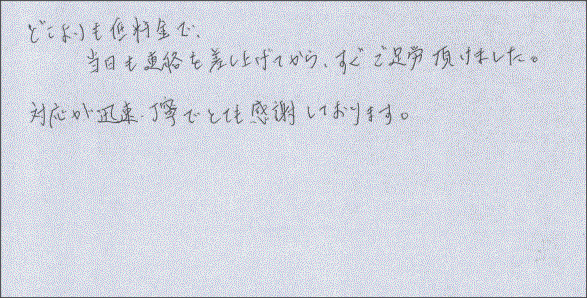 どこよりも低料金で、
当日も連絡を差し上げてから、すぐご足労頂けました。
対応が迅速、丁寧でとても感謝しております。